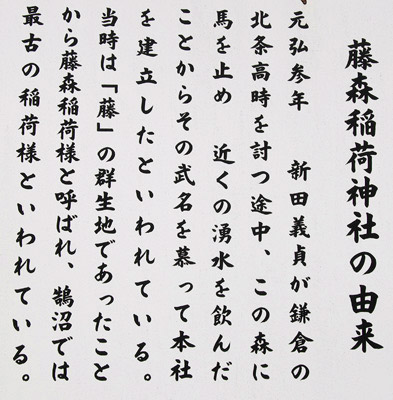 藤森稲荷神社の由来
元弘参年　新田義貞が鎌倉の
北条高時を討つ途中、この森に
馬を止め　近くの湧水を飲んだ
ことからその武名を慕って本社
を建立したといわれている。
当時は「藤」の群生地であったこと
から藤森稲荷様と呼ばれ、鵠沼では
最古の稲荷様といわれている。